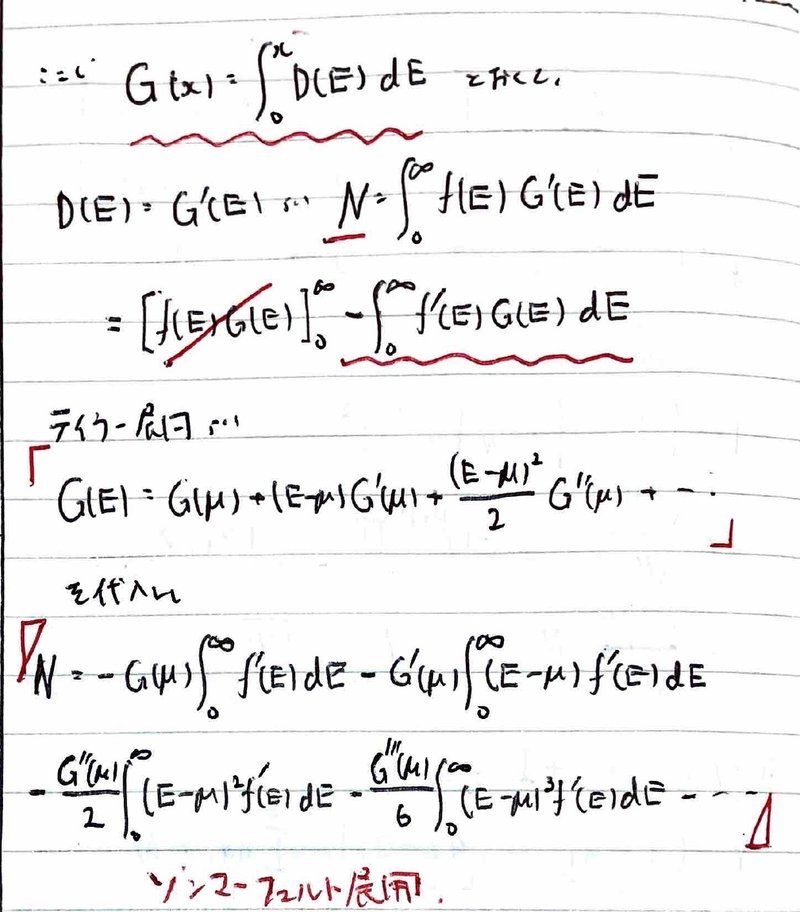 ここで G(x) = ∫₀ˣ D(E) dE とおくと、
D(E) = G′(E) ∵ N = ∫₀^∞ f(E) G′(E) dE
= [f(E)G(E)]₀^∞ − ∫₀^∞ f′(E) G(E) dE
テイラー展開 ∵
「G(E) = G(μ) + (E−μ)G′(μ) + (E−μ)²/2 G″(μ) + ‐‐‐」
を代入し
『N = −G(μ)∫₀^∞ f′(E) dE − G′(μ)∫₀^∞ (E−μ) f′(E) dE
− G″(μ)/2 ∫₀^∞ (E−μ)² f′(E) dE − G‴(μ)/6 ∫₀^∞ (E−μ)³ f′(E) dE − ‐‐‐』
ゾンマーフェルト展開.